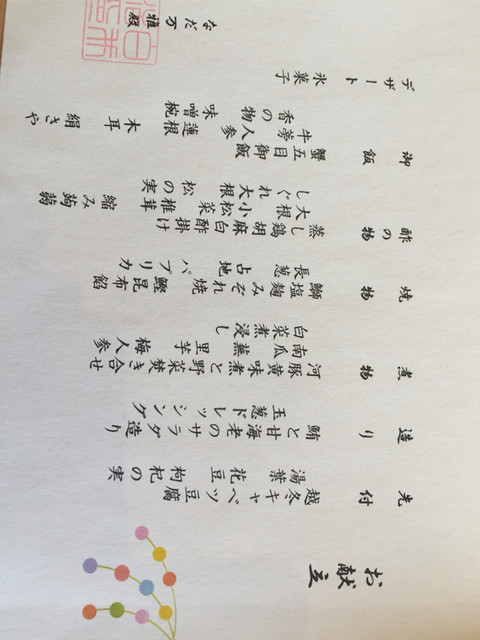 お献立
先付
越冬キャベツ豆腐
湯葉 花豆 枸杞の実
造り
鮪と甘海老のサラダ造り
玉葱ドレッシング
煮物
河豚黄味煮と野菜焚き合せ
南瓜 蕪 里芋 梅人参
白菜煮浸し
焼物
鰤塩麹みぞれ焼 鰹昆布餡
長葱 占地 パプリカ
酢の物
蒸し鶏胡麻白酢掛け
大根 小松菜 椎茸 縮み蒟蒻
しぐれ大根 松の実
御飯
蟹五目御飯
牛蒡 人参 蓮根 木耳 絹さや
香の物 味噌椀
デザート
氷菓子
なだ万 雅殿